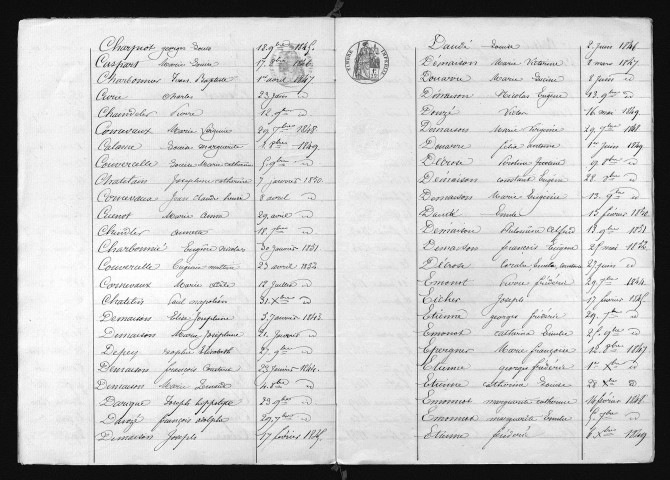 Charpiot Georges Louis 18. 9bre 1845.
Caspart Marie Louise 17. 1846.
Charbonnier Jean Baptiste 1er avril 1847
Cuvre Charles 23 juin d
Chaindeler Pierre 12. 9bre d
Cornevaux Marie 29. 7bre 1848.
Calame Louise Marguerite 1849.
Couvercelle Louise Marie Catherine 5. 9bre d
Chatelain Joséphine Catherine 7 janvier 1850.
Cornevaux Jean Claude 8 avril d
Cuenot Marie Anne 29. avril d
Chindler 18. 7bre d
Charbonnié Eugène Nicolas 30 Janvier 1851.
Couvercelle Eugénie 23 avril 1852.
Cornevaux Marie 12 Juillet d
Chatelin Paul Napoléon 31. Xbre d
Demaison Elise Joséphine 3. Janvier 1843.
Demaison Marie Joséphine 21. Janvier d
Depey Sophie Elisabeth 27. 9bre d
Demaison François Constant 23 Janvier 1844.
Demaison Marie d
Daraque Joseph hippolite 23. 9bre d
François Adolphe 29. 7bre d
Demaison Joseph 17 février 1845.
TIMBRE IMPÉRIAL
Daudé Louise 2. juin 1846.
Demaison Marie Victorine 1 mars 1847
Douavre Marie Louise 8 juin d
Demaison Nicolas Eugène 13. 9bre d
Douzé Victor 16 mai 1849.
Demaison Marie Virginie 29. 7bre 1848.
Douavre félix Antoine 1er Juin 1849
Debrose d
Demaison Constant Eugène 28. 9bre d
Demaison Marie Eugénie 13. 9bre d
Daudé Emile 15 février 1850.
Demaison Alfred 18. 1851.
Demaison françois Eugène 27. mai 1852.
Debrose 27 juin d
Emont Pierre frédéric 29. 7bre 1844.
Eicher Joseph 17 février 1845.
Etienne georges fréderic 29. 7bre d
Emonot Catherine Emilie 25. 9bre d
Epergner Marie françoise 12. 8bre 1847
Etienne georges fréderic 1er Xbre d
Etienne Catherine Louise 28 Xbre d
Emonnot Marguerite Catherine 16 février 1848.
Emonnot Marguerite Emilie 5. 9bre d
Etienne fréderic 6 Xbre 1849